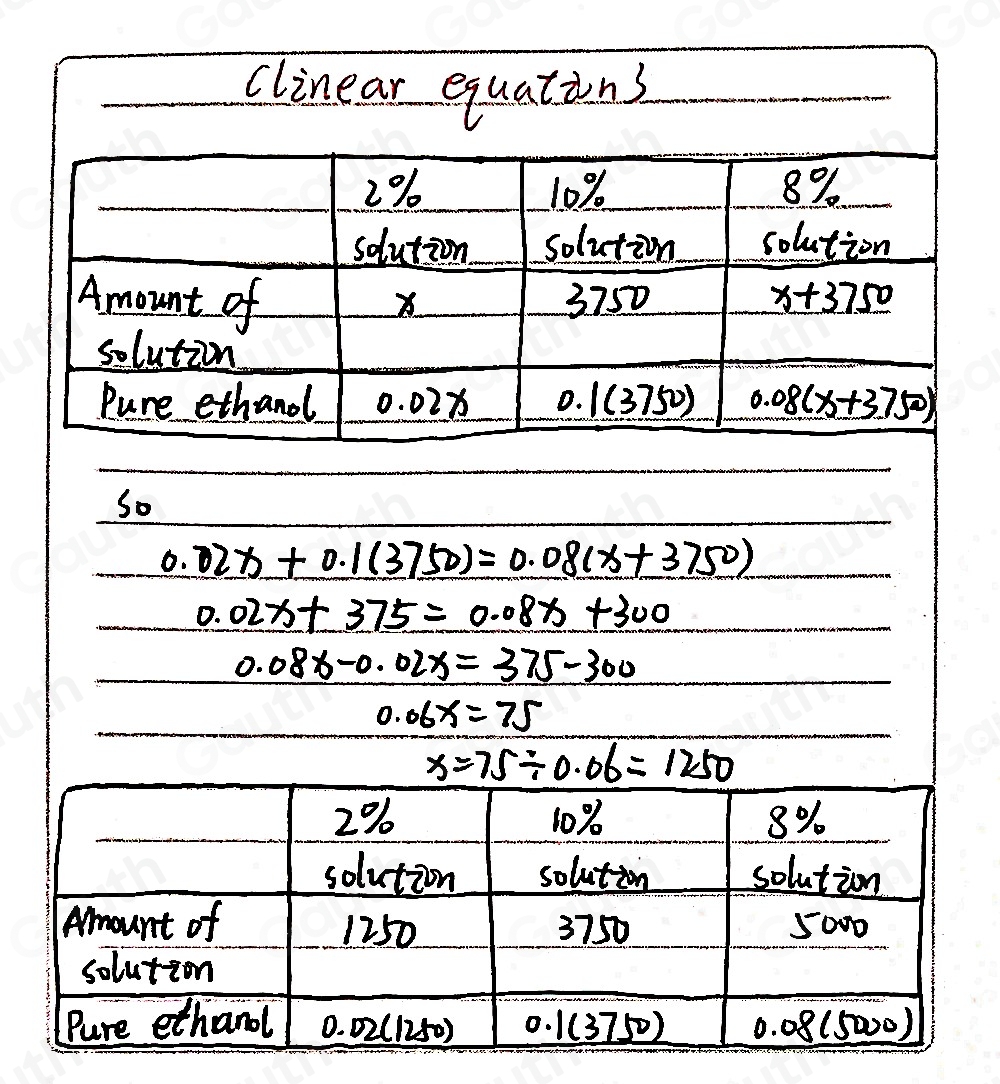 Clinear equations
2% 10% 8%
solution solution solution
Amount of x 3750 x+3750
solution
Pure ethanol 0.02x 0.1(3750) 0.08(x+3750)
so
0.02x + 0.1(3750) = 0.08(x+3750)
0.02x + 375 = 0.08x + 300
0.08x-0.02x = 375-300
0.06x = 75
x = 75 ÷ 0.06 = 1250
2% 10% 8%
solution solution solution
Amount of 1250 3750 5000
solution
Pure ethanol 0.02(1250) 0.1(3750) 0.08(5000)
Gauth